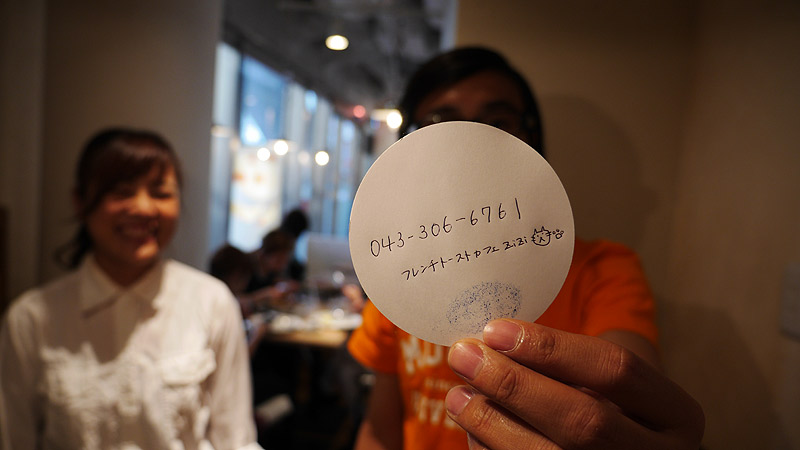 043-306-6761
フレンチトーストカフェ ZiZi